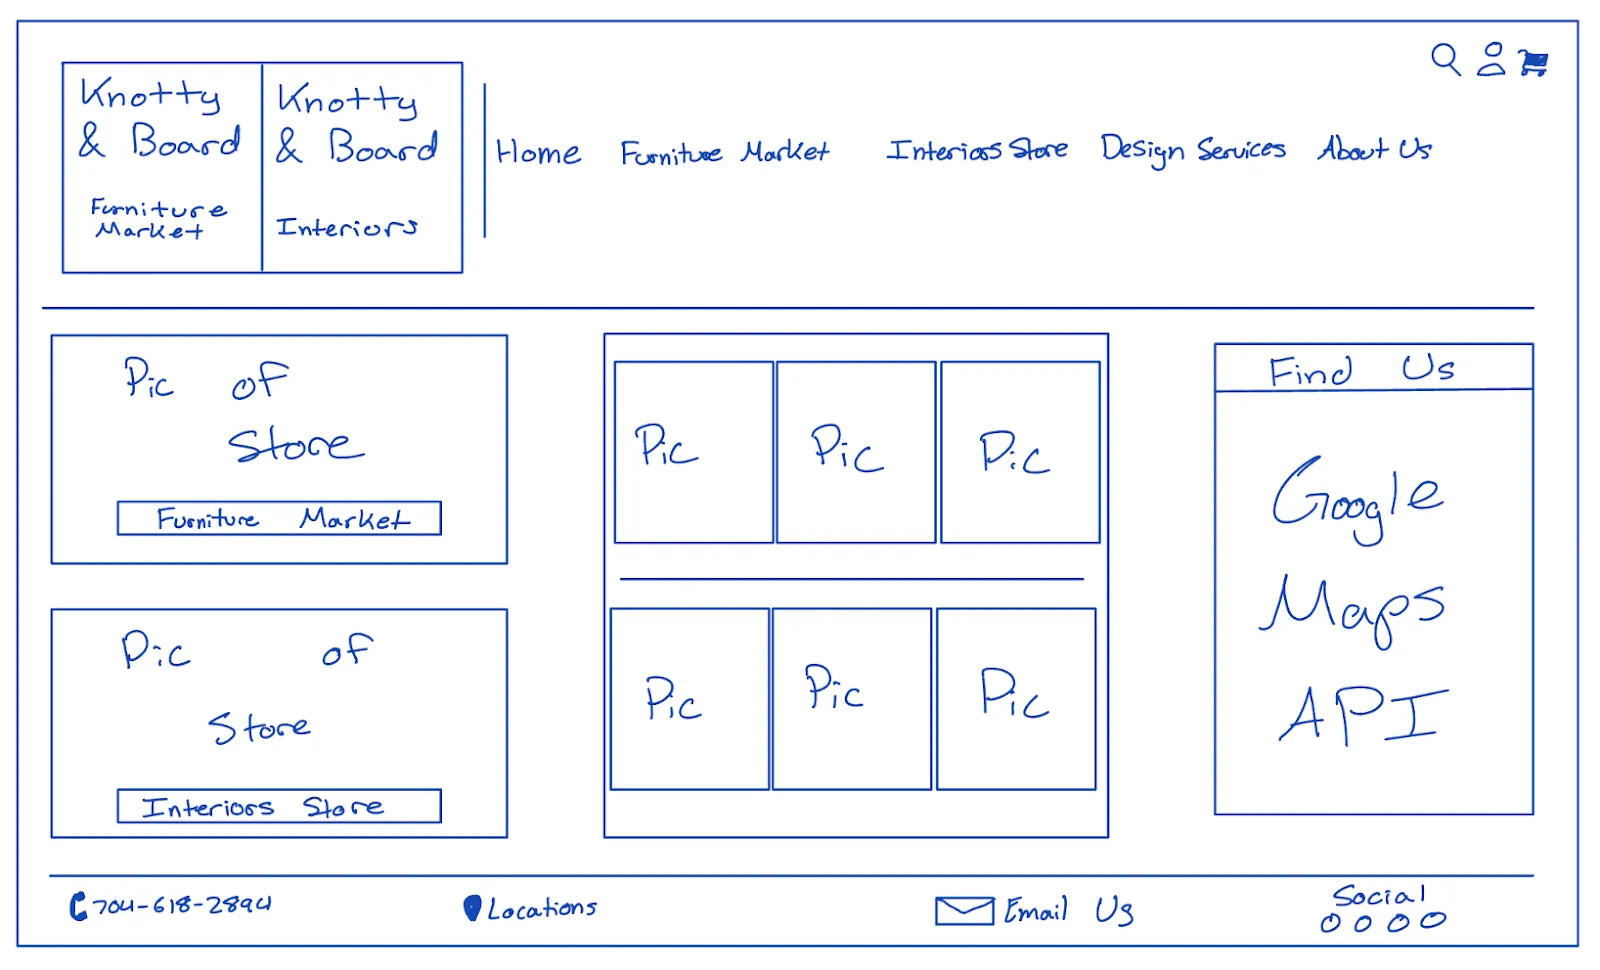 Knotty
& Board
Furniture
Market
Knotty
& Board
Interiors
Home
Furniture Market
Interiors Store
Design Services
About Us
Pic of
Store
Furniture Market
Pic of
Store
Interiors Store
Pic
Pic
Pic
Pic
Pic
Pic
Find Us
Google
Maps
API
704-618-2894
Locations
Email Us
Social